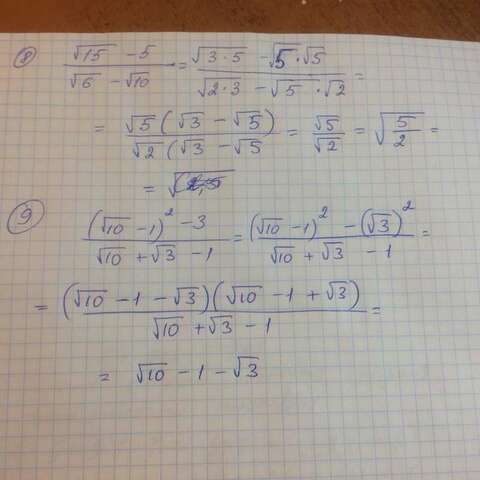 8 (√15 - 5)/(√6 - √10) = (√3·5 - √5·√5)/(√2·3 - √5·√2) =
= √5(√3 - √5)/√2(√3 - √5 = √5/√2 = √5/2 =
= √
9 ((√10 - 1)² - 3)/(√10 + √3 - 1) = ((√10 - 1)² - (√3)²)/(√10 + √3 - 1) =
= (√10 - 1 - √3)(√10 - 1 + √3)/(√10 + √3 - 1) =
= √10 - 1 - √3